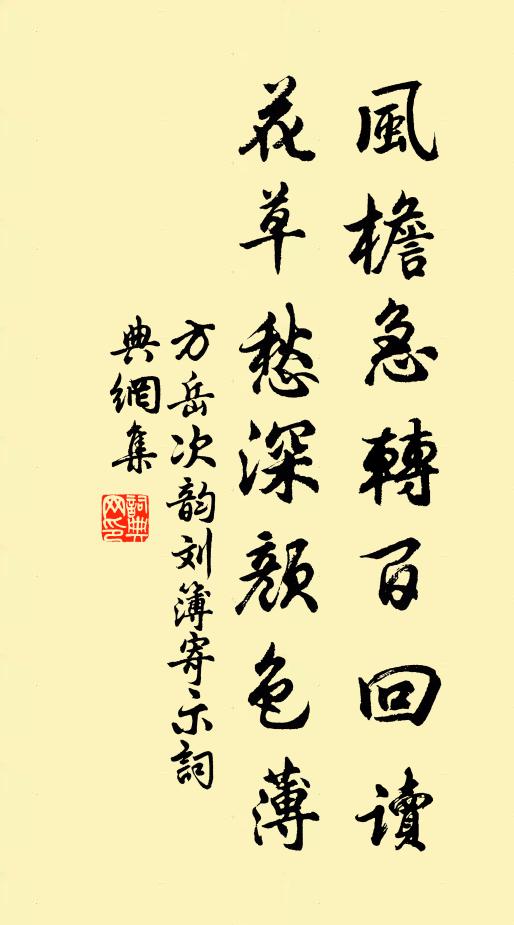 風檐急轉百回讀
花草愁深顏色薄
方岳次韵刘簿寄示詞
典網集
詞典網印